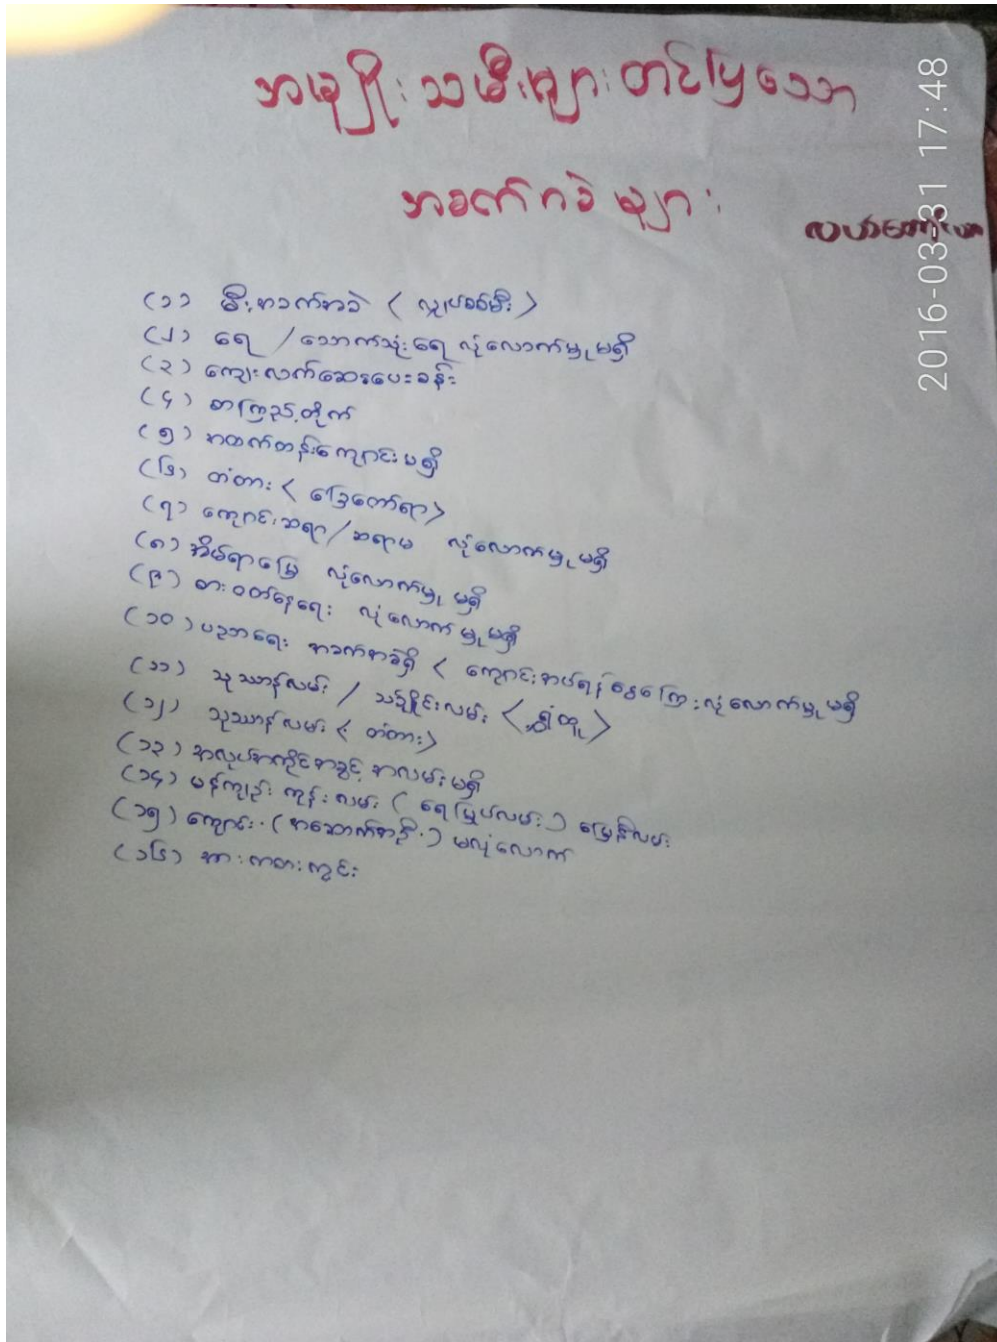 အမျိုးသမီးများတင်ပြသော
အခက်အခဲများ
2016-03-31 17:48
(၁) မီးအခက်အခဲ (လျှပ်စစ်မီး)
(၂) ရေ / သောက်သုံးရေ လုံလောက်မှုမရှိ
(၃) ကျေးလက်ဆေးပေးခန်း
(၄) စာကြည့်တိုက်
(၅) အထက်တန်းကျောင်းမရှိ
(၆) တံတား (ဒြေတော်ရာ)
(၇) ကျောင်းဆရာ/ဆရာမ လုံလောက်မှုမရှိ
(၈) အိမ်ရာမြေ လုံလောက်မှုမရှိ
(၉) စားဝတ်နေရေး လုံလောက်မှုမရှိ
(၁၀) ပညာရေး အခက်အခဲရှိ (ကျောင်းအပ်ရန် ငွေကြေးလုံလောက်မှုမရှိ
(၁၁) သုသာန်လမ်း / လမ်း
(၁၂) သုသာန်လမ်း (တံတား)
(၁၃) အလုပ်အကိုင်အခွင့်အလမ်းမရှိ
(၁၄) မန်ကျည်းကုန်းလမ်း (ရေမြုပ်လမ်း) မြေနီလမ်း
(၁၅) ကျောင်း (အဆောက်အဦး) မလုံလောက်
(၁၆) အားကစားကွင်း